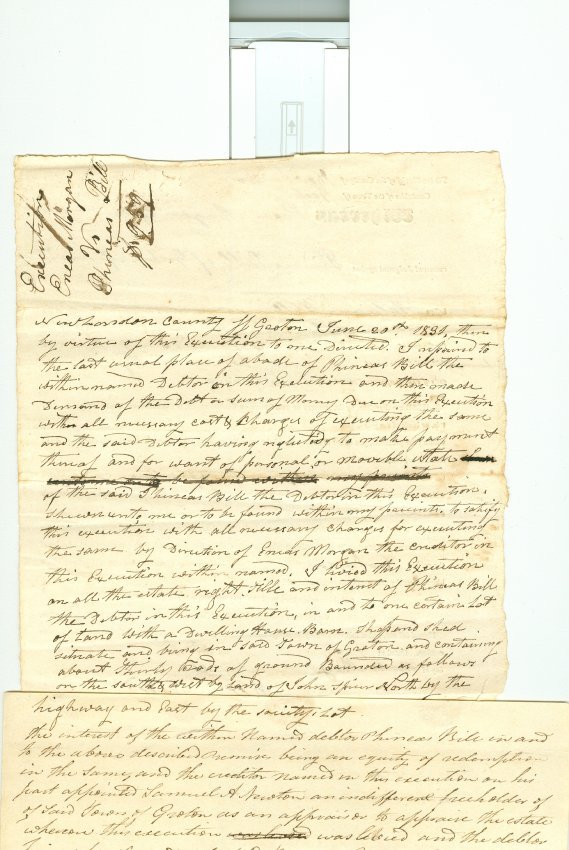 Execution
Eneas Morgan
Vs
Phineas Bill
New London County ss Groton June 20th 1831, then
by virtue of this Execution to one Directed. I repaired to
the last usual place of abode of Phineas Bill the
within named Debtor in this Execution and then made
Demand of the Debt or sum of Money Due on this Execution
with all necessary cost & Charges of executing the same
and the said Debtor having neglected to make payment
thereof and for want of personal or movable estate
to be found within my precincts
of the said Phineas Bill the Debtor in this Execution.
shewn unto me or to be found within my precincts. to satisfy
this execution with all necessary charges for executing
the same by Direction of Eneas Morgan the creditor in
this Execution within named. I levied this Execution
on all the estate right Title and interest of Phineas Bill
the Debtor in this Execution, in and to one certain Lot
of Land with a Dwelling House Barn. Shop and shed
situate and being in said Town of Groton and containing
about Thirty Rods of ground Bounded as follows
on the south & west by Land of John Spicer North by the
highway and East by the society Lot
the interest of the within Named debtor Phineas Bill in and
to the above described premise being an equity of redemption
in the same, and the creditor named in this execution on his
part appointed Samuel A. Newton an indifferent freeholder of
of said Town of Groton as an appraiser to appraise the estate
whereon this execution was levied and the debtor